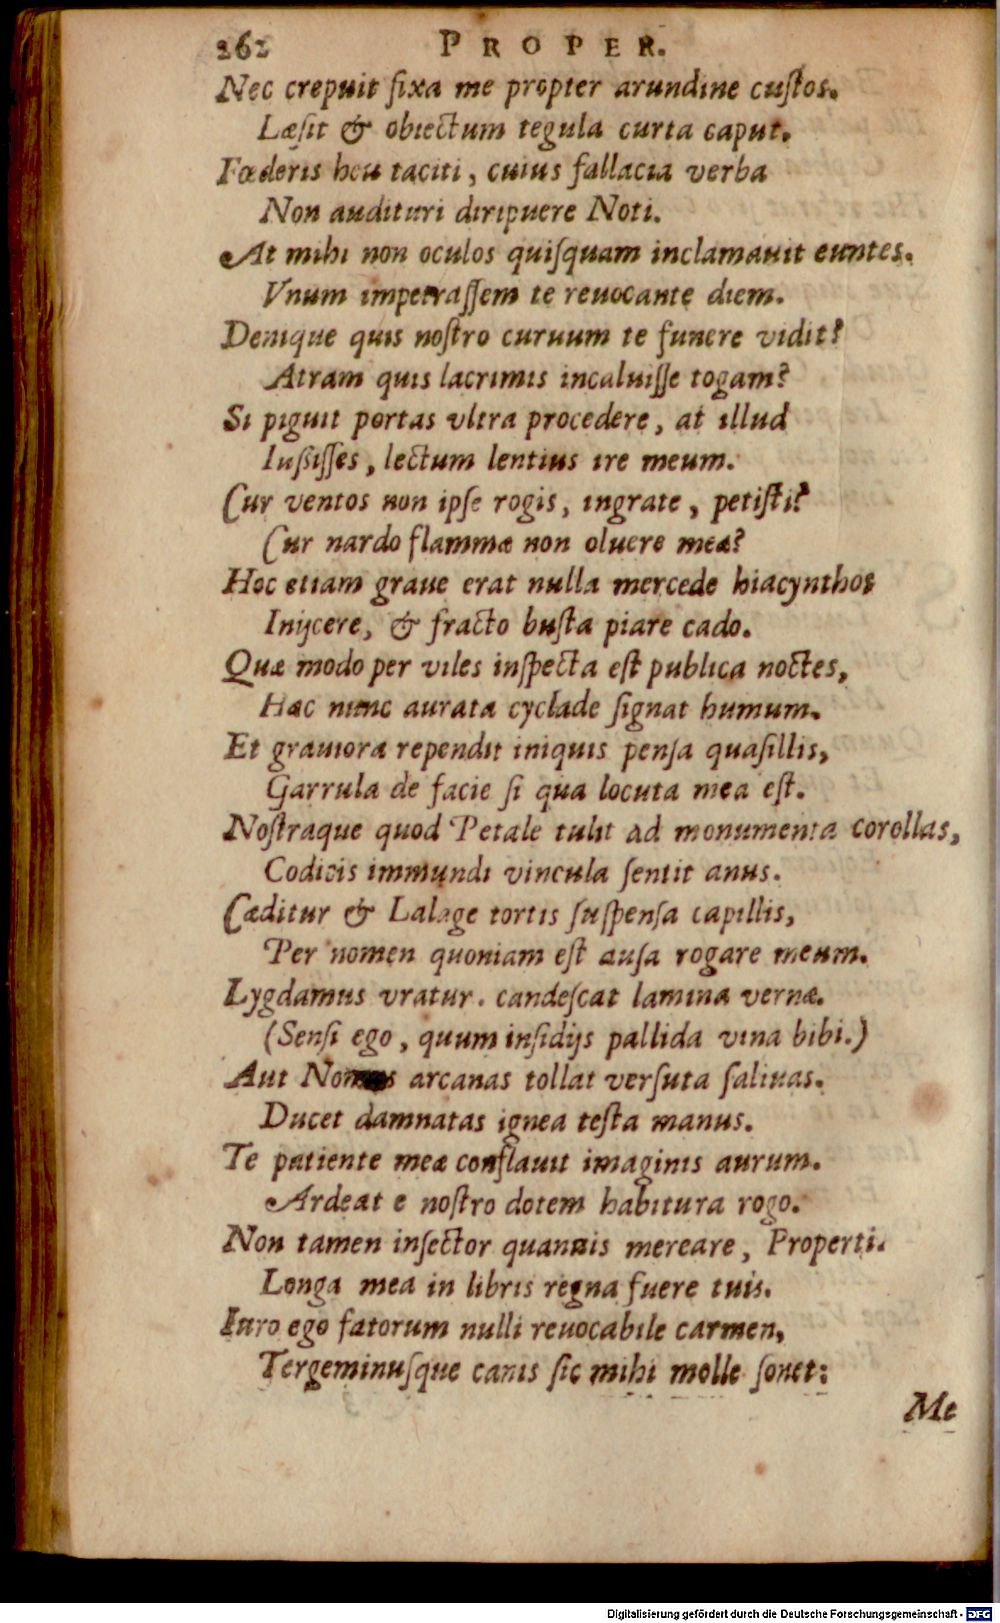 262 PROPER.
Nec crepuit fixa me propter arundine cuſtos.
Læſit & obiectum tegula curta caput.
Fœderis heu taciti, cuius fallacia verba
Non audituri diripuere Noti.
At mihi non oculos quiſquam inclamauit euntes.
Vnum impetraſſem te reuocante diem.
Denique quis noſtro curuum te funere vidit?
Atram quis lacrimis incaluiſſe togam?
Si piguit portas vltra procedere, at illud
Iuſsiſſes, lectum lentius ire meum.
Cur ventos non ipſe rogis, ingrate, petiſti?
Cur nardo flammæ non oluere meæ?
Hoc etiam graue erat nulla mercede hiacynthos
Inijcere, & fracto buſta piare cado.
Quæ modo per viles inſpecta eſt publica noctes,
Hæc nunc aurata cyclade ſignat humum.
Et grauiora rependit iniquis penſa quaſillis,
Garrula de facie ſi qua locuta mea eſt.
Noſtraque quod Petale tulit ad monumenta corollas,
Codicis immundi vincula ſentit anus.
Cæditur & Lalage tortis ſuſpenſa capillis,
Per nomen quoniam eſt auſa rogare meum.
Lygdamus vratur. candeſcat lamina vernæ.
(Senſi ego, quum inſidijs pallida vina bibi.)
Aut arcanas tollat verſuta ſaliuas.
Ducet damnatas ignea teſta manus.
Te patiente meæ conflauit imaginis aurum.
Ardeat e noſtro dotem habitura rogo.
Non tamen inſector quamuis mereare, Properti.
Longa mea in libris regna fuere tuis.
Iuro ego fatorum nulli reuocabile carmen,
Tergeminuſque canis ſic mihi molle ſonet:
Me
Digitalisierung gefördert durch die Deutsche Forschungsgemeinschaft - DFG